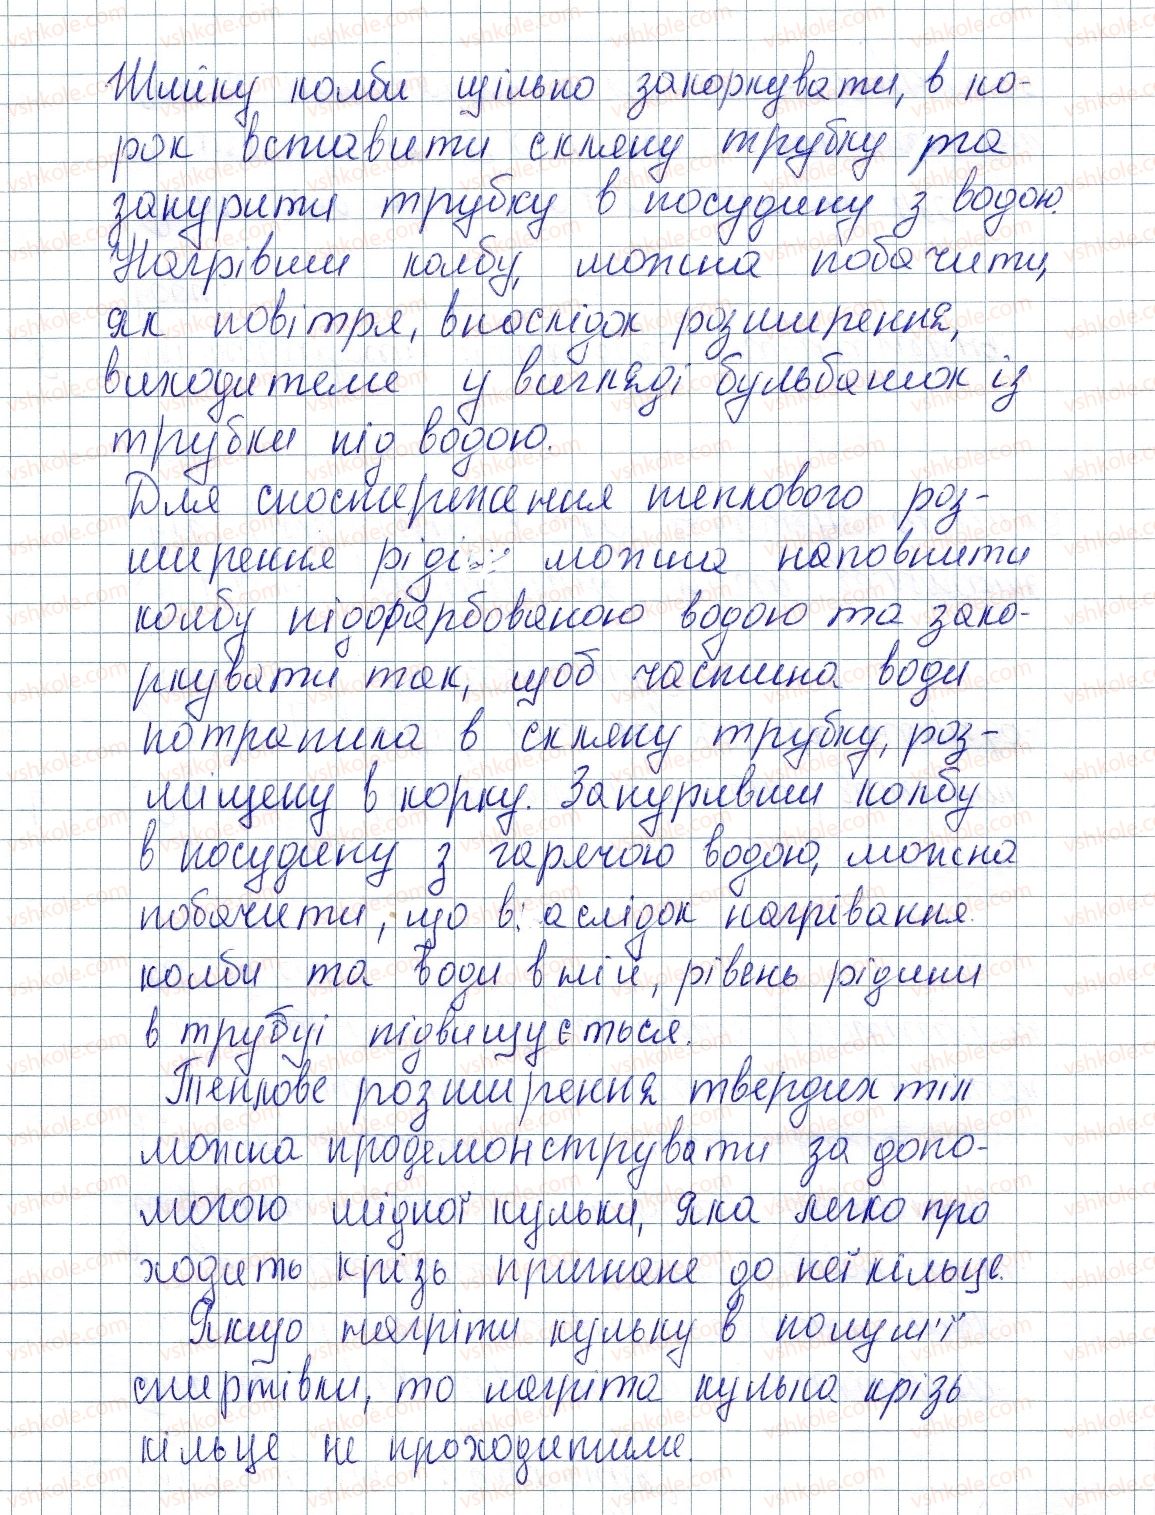 Шийку колби щільно закоркувати, в ко-
рок вставити скляну трубку та
занурити трубку в посудину з водою.
Нагрівши колбу, можна побачити,
як повітря, внаслідок розширення,
виходитеме у вигляді бульбашок із
трубки під водою.
Для спостереження теплового роз-
ширення ріді можна наповнити
колбу підфарбованою водою та зако-
ркувати так, щоб частина води
потрапила в скляну трубку, роз-
міщену в корку. Зануривши колбу
в посудину з гарячою водою, можна
побачити, що в аслідок нагрівання
колби та води в ній, рівень рідини
в трубці підвищується.
Теплове розширення твердих тіл
можна продемонструвати за допо-
могою мідної кульки, яка легко про
ходить крізь пригнане до неї кільце.
Якщо нагріти кульку в полум'ї
спиртівки, то нагріта кулька крізь
кільце не проходитиме.